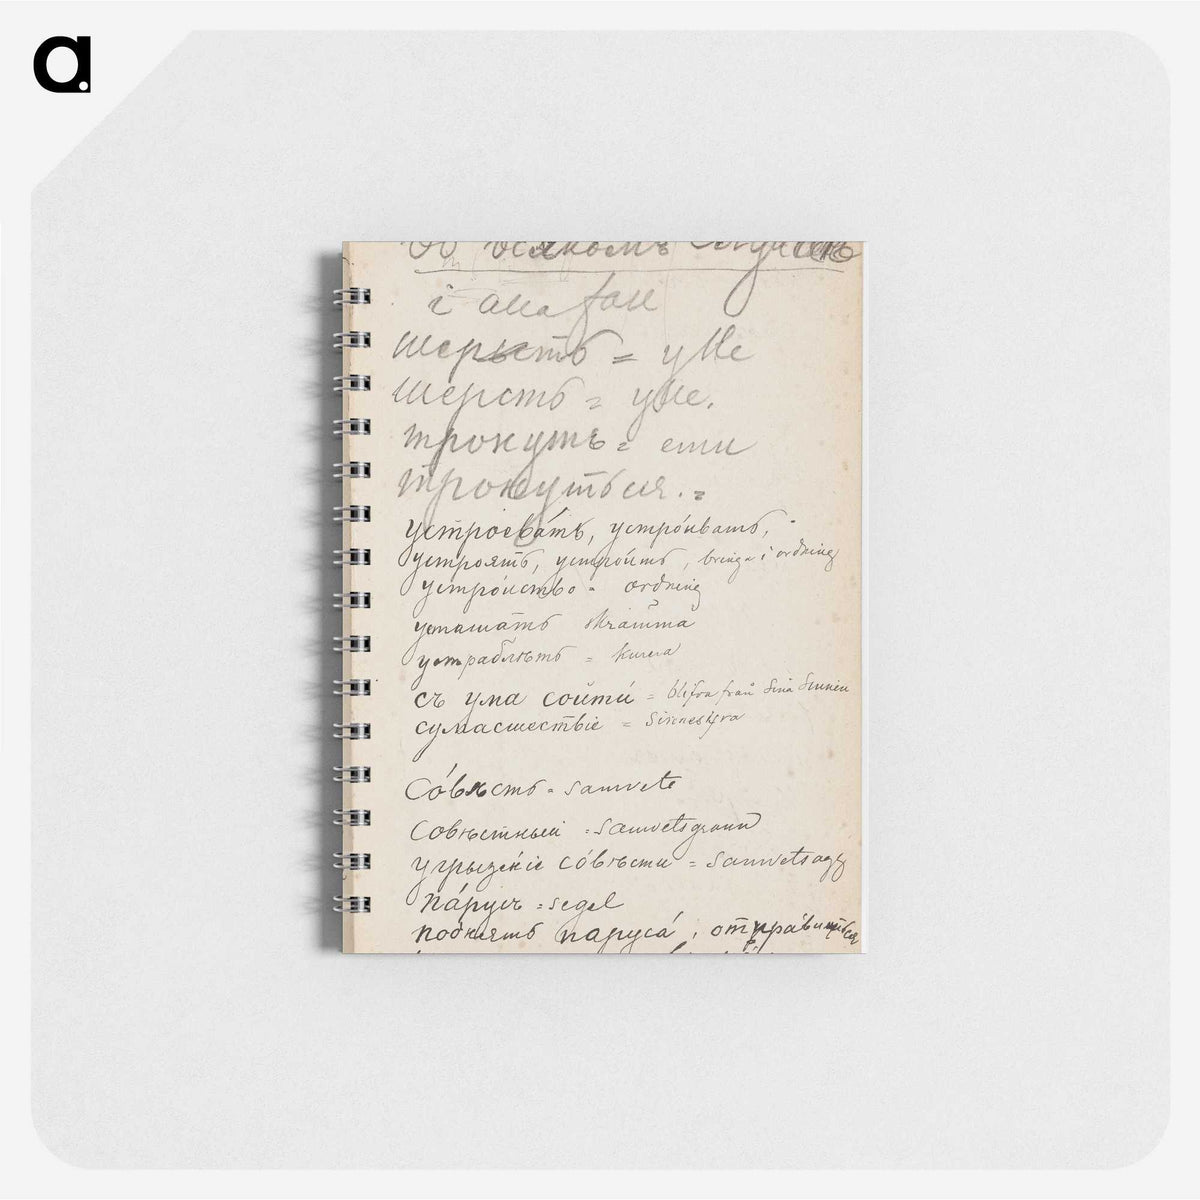 a.
всякомъ случаѣ
i alla fall
шерсть = ylle
шерсть = ylle.
тронуть =
тронуться. =
устроевáть, устрóивать,
устроять, устрóить, bringa i ordning
устрóйство = ordning
усташáть skrämma
= kurera
съ ума сойти́ = blifva från sina sinnen
сумасшествіе =
Сóвѣсть = samvete
совѣстный = samvetsgrann
угрызéніе сóвѣсти = samvetsagg
пáрусъ = segel
поднять парусá; отпрáвиться